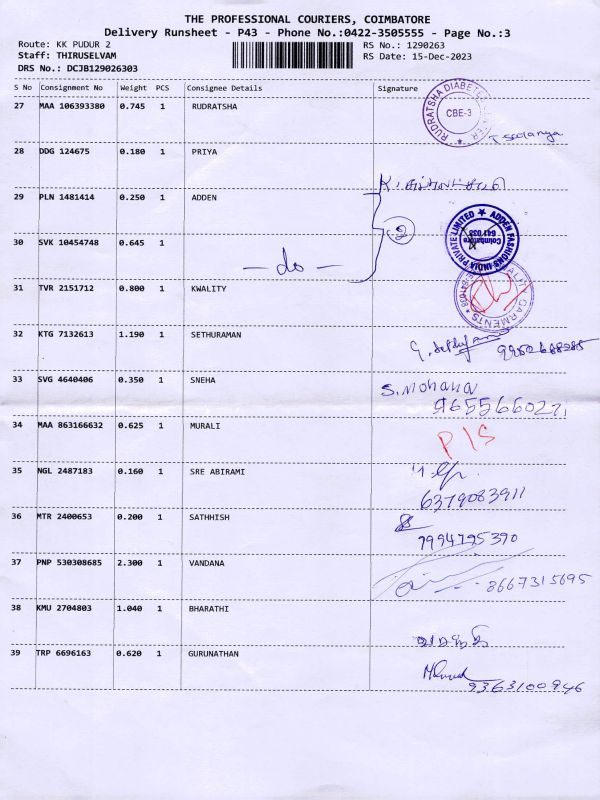 THE PROFESSIONAL COURIERS, COIMBATORE
Delivery Runsheet - P43 - Phone No.:0422-3505555 - Page No.:3
Route: KK PUDUR 2
RS No.: 1290263
Staff: THIRUSELVAM
RS Date: 15-Dec-2023
DRS No.: DCJB129026303
S No Consignment No Weight PCS Consignee Details Signature
27 MAA 106393380 0.745 1 RUDRATSHA
RUDRATSHA DIABETES
CBE-3
28 DDG 124675 0.180 1 PRIYA
29 PLN 1481414 0.250 1 ADDEN
2
ADDEN FASHIONS INDIA PRIVATE LIMITED
Coimbatore
641 038
30 SVK 10454748 0.645 1
— do —
31 TVR 2151712 0.800 1 KWALITY
GARMENTS
32 KTG 7132613 1.190 1 SETHURAMAN
33 SVG 4640406 0.350 1 SNEHA
S. Mohana
34 MAA 863166632 0.625 1 MURALI
P/S
35 NGL 2487183 0.160 1 SRE ABIRAMI
6379083911
36 MTR 2400653 0.200 1 SATHHISH
7994795390
37 PNP 530308685 2.300 1 VANDANA
8667315695
38 KMU 2704803 1.040 1 BHARATHI
39 TRP 6696163 0.620 1 GURUNATHAN
9363100946